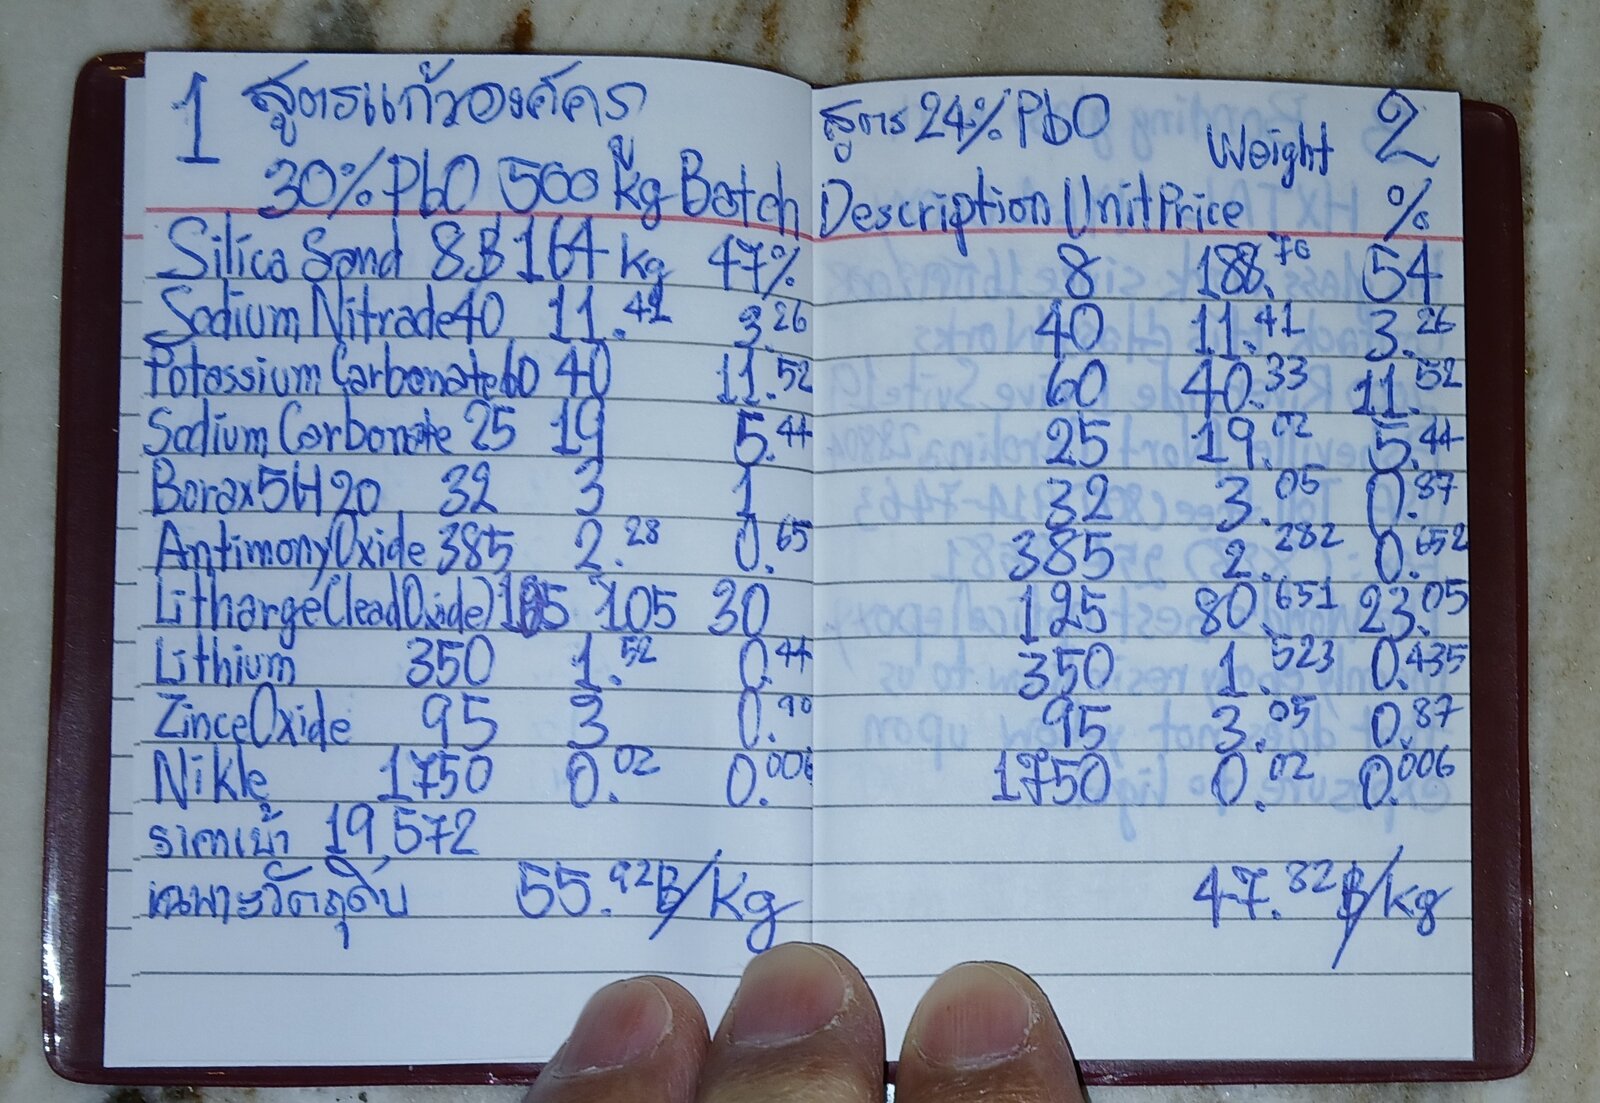 1 สูตรแก้วองค์ครู
30% PbO 500 kg Batch
Silica Sand 8฿ 164 kg 47%
Sodium Nitrade 40 11.41 3.26
Potassium Carbonate 60 40 11.52
Sodium Carbonate 25 19 5.44
Borax5H20 32 3 1
Antimony Oxide 385 2.28 0.65
Litharge(lead Oxide) 105 30
Lithium 350 1.52 0.44
Zince Oxide 95 3 0.90
Nikle 1750 0.02 0.006
ราคาเบ้า 19572
เฉพาะวัตถุดิบ 55.92฿/kg
สูตร 24% PbO 2
Description Unit Price Weight %
8 188.76 54
40 11.41 3.26
60 40.33 11.52
25 19.02 5.44
32 3.05 0.87
385 2.282 0.652
125 80.651 23.05
350 1.523 0.435
95 3.05 0.87
1750 0.02 0.006
47.82฿/kg